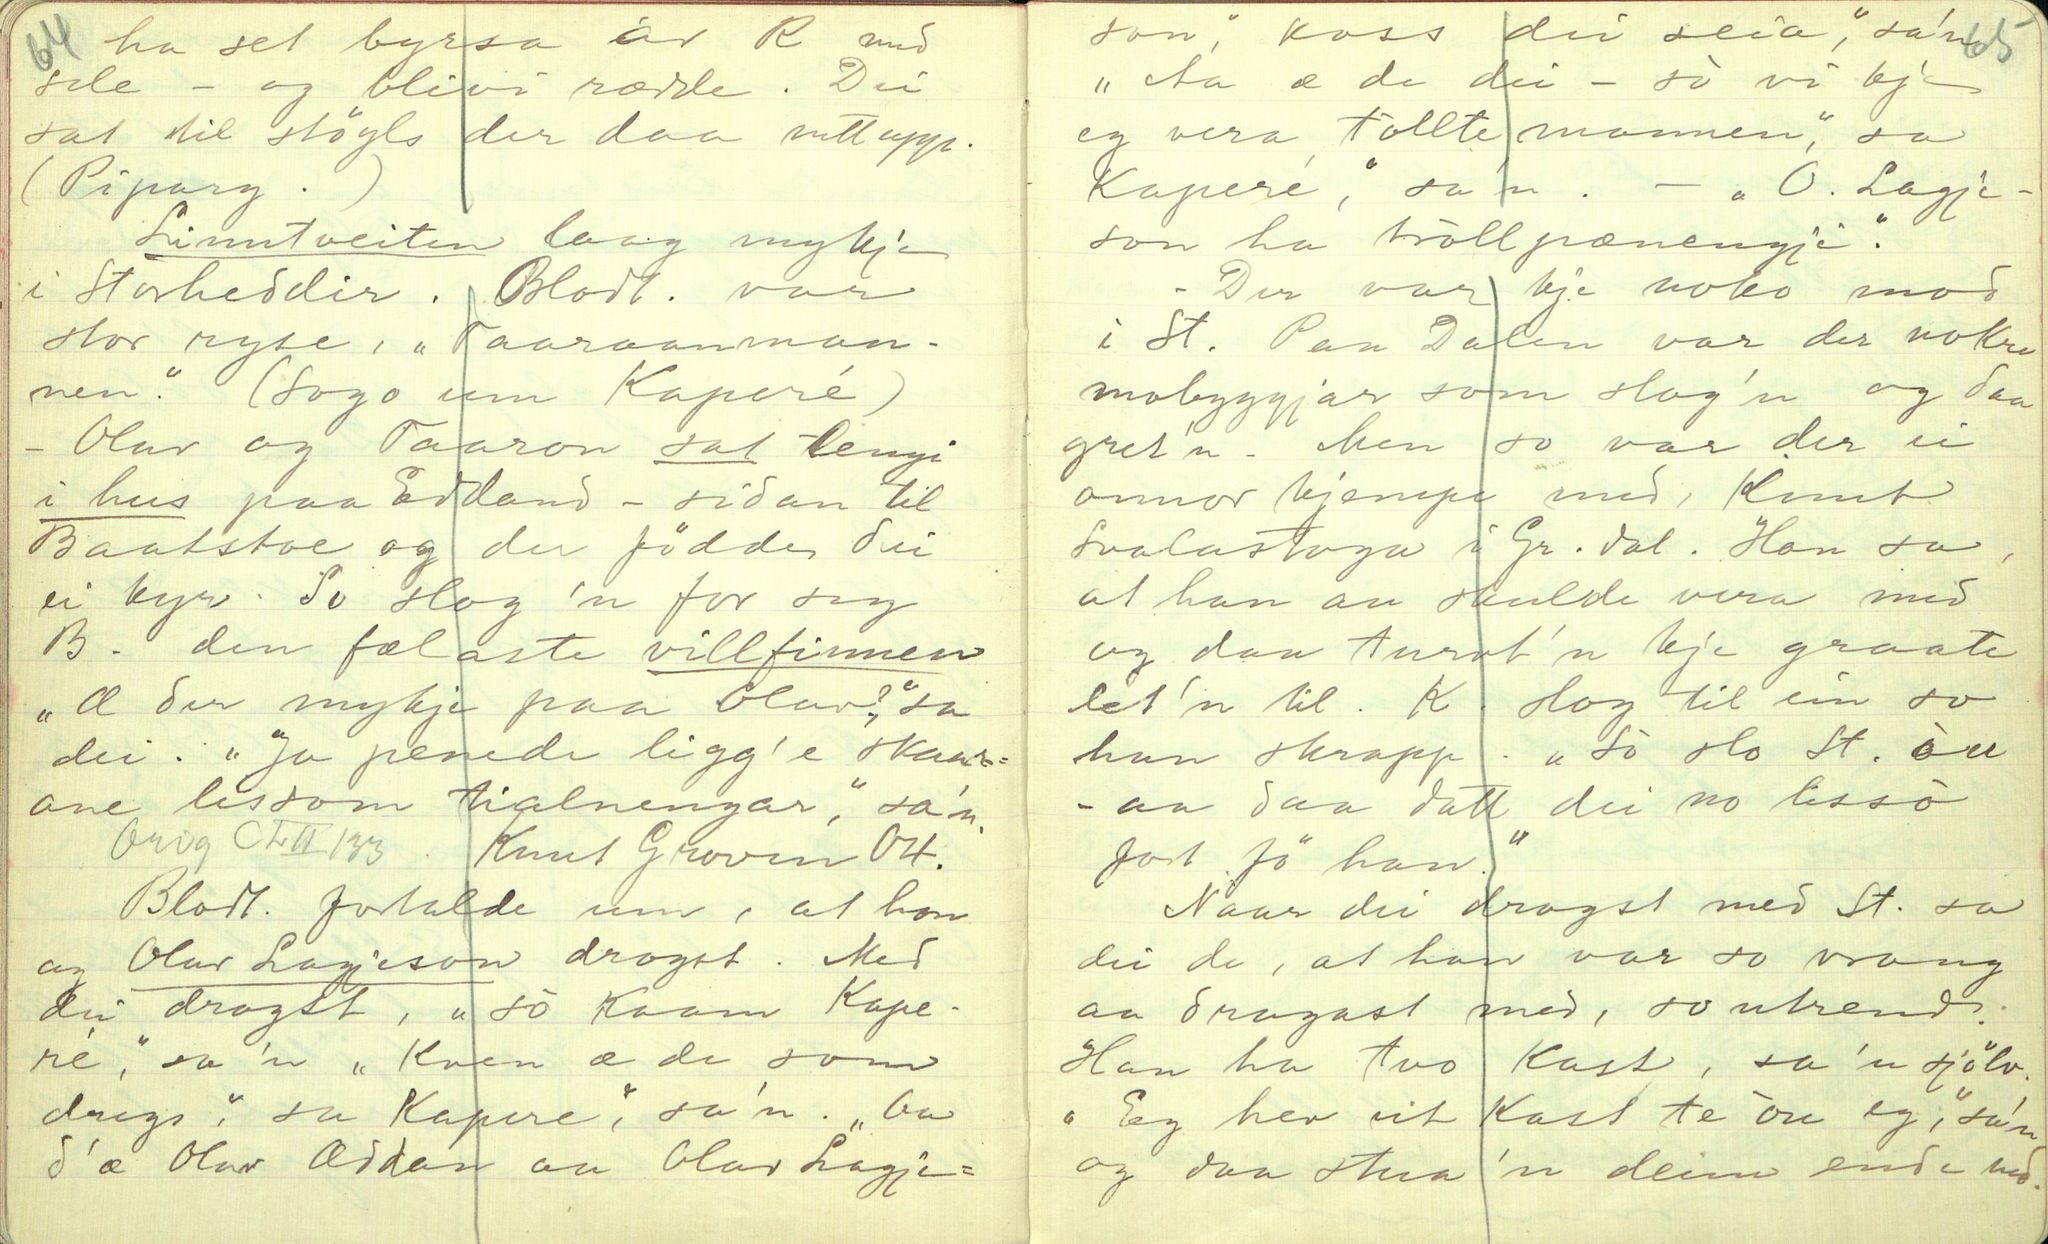 64
ha set byrsa är R med
sele – og blivi rædde. Dei
sat til stögls der daa nott upp.
(Piparg.)
Linntveiten laag mykje
i Storheddir. Blodt. var
stor ryse, „Taaraanman-
nen“. (Sogo um Kaperé)
– Olav og Taaron sat lengi
i hus paa Eddand – sidan til
Baatstoe og der födde dei
ei kyr. So slog 'n for seg
B. den fælaste villfinnen
„Æ der mykje paa Olav?,“ sa
dei. „Ja penede ligg'e skaar-
ane lissom tialnengar,“ sa'n.
Orig CLII 133 Knut Groven Ot.
Blodt. fortalde um, at han
og Olav Lagjeson drogst. Med
dei drogst, „so kaam Kape-
ré,“ sa'n „Kven æ de som
dregs“, sa Kapere“, sa'n. „Aa
d'æ Olav Øddan aa Olav Lagje=
65
son“, koss dei seia“, sa'n
„Aa æ de dei – sò vi kje
eg vera tollte mannen“, sa
Kaperé,“ sa'n. – „O. Lagje-
son ha tròllpænengje“.
– Der var kje noko mod
i St. Paa Dalen var der nokre
mobyggjar som slog'n og daa
gret'n. Men so var der ei
annor kjempe med, Knut
Svalastoga i Gr.dal. Han sa,
at han au skulde vera med
og daa turvt'n kje graate
let'n til. K. slog til ein so
han skrapp. „Sò slo St. òu
– aa daa datt dei no lissò
fort fö han.“
Naar dei drogst med St. sa
dei de, at han var so vrang
aa dragast med, so utrend.
Han ha two kast, sa'n sjölv.
„Eg hev eit kast te òu eg,“ sa'n
og daa stua'n deim ende ned.